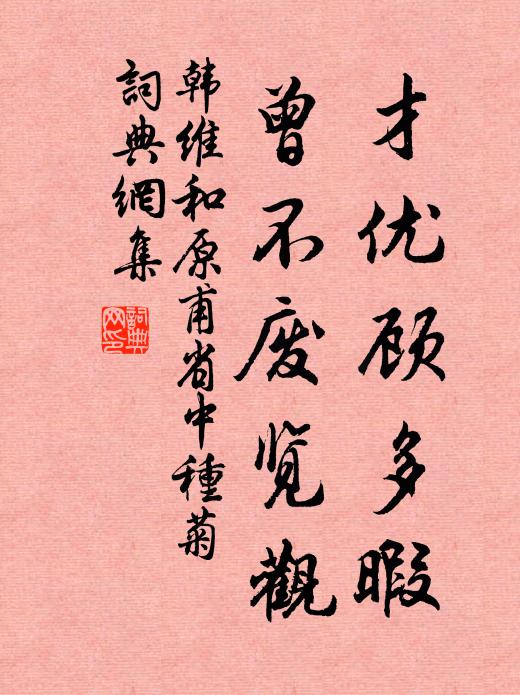 才优顾多暇
曾不废览觀
韩维和原甫省中種菊
詞典網集
詞典网印